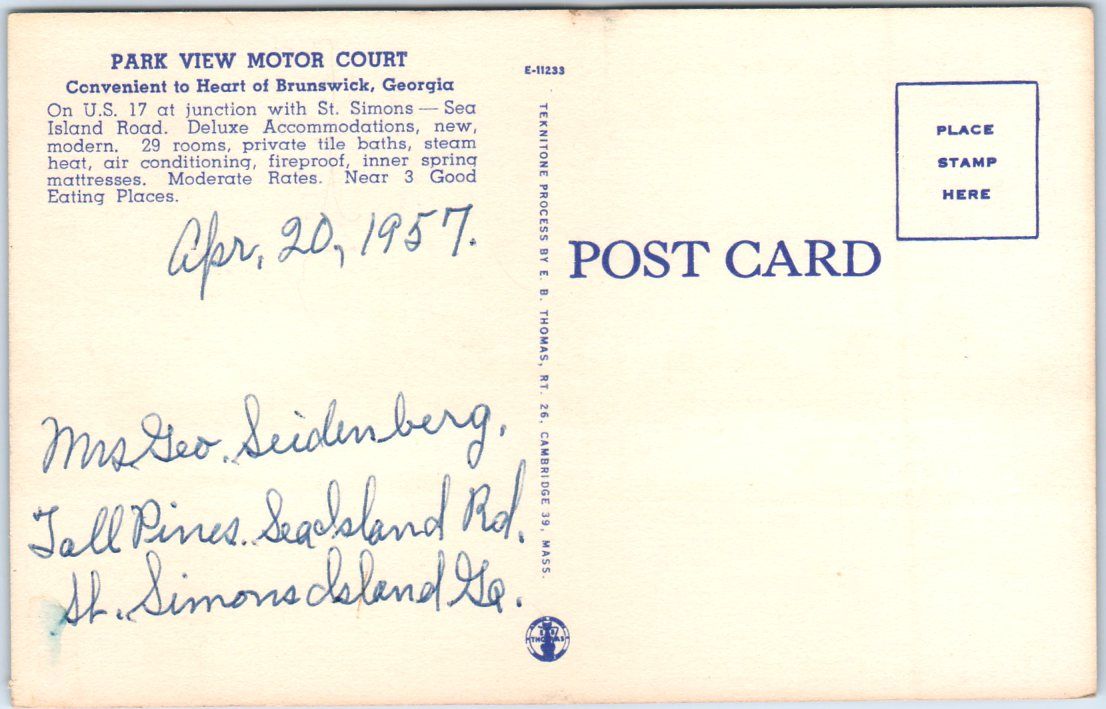 PARK VIEW MOTOR COURT
Convenient to Heart of Brunswick, Georgia
On U.S. 17 at junction with St. Simons — Sea
Island Road. Deluxe Accommodations, new,
modern. 29 rooms, private tile baths, steam
heat, air conditioning, fireproof, inner spring
mattresses. Moderate Rates. Near 3 Good
Eating Places.
Apr, 20, 1957.
Mrs Geo. Seidenberg,
Tall Pines. Sea Island Rd.
St. Simons Island Ga.
E-11233
TEKNITONE PROCESS BY E. B. THOMAS, RT. 26, CAMBRIDGE 39, MASS.
THOMAS
POST CARD
PLACE
STAMP
HERE